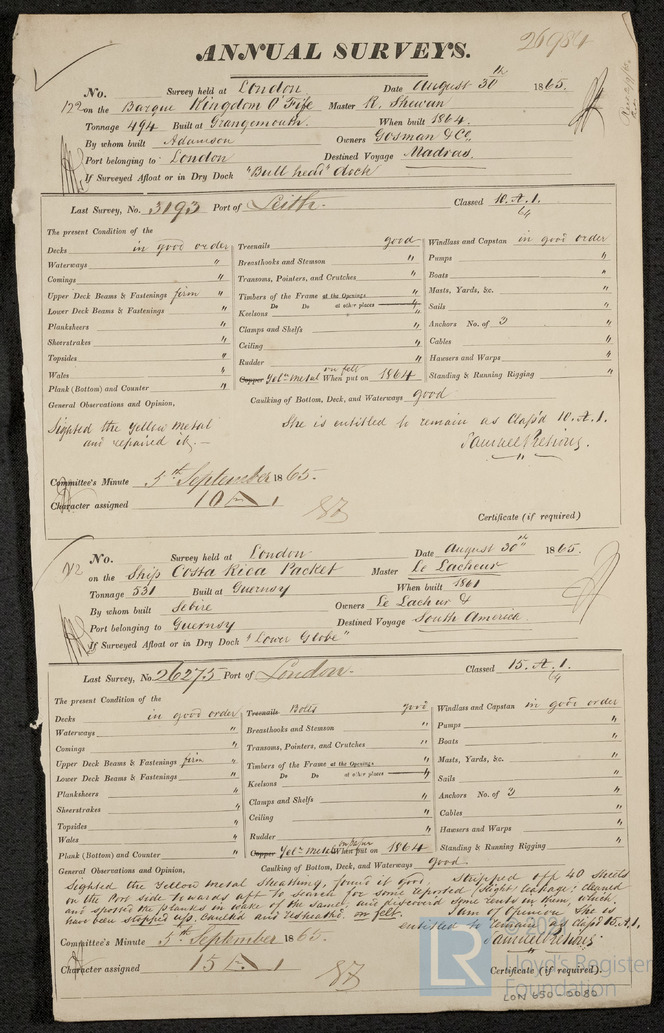 26984
ANNUAL SURVEYS.
No. Survey held at London Date August 30th 1865.
122 on the Barque Kingdom O'Fife Master R. Shewan
Tonnage 494 Built at Grangemouth. When built 1864.
By whom built Adamson Owners Gosman & Co.
Port belonging to London Destined Voyage Madras.
If Surveyed Afloat or in Dry Dock "Bull head" dock
Last Survey, No. 3193 Port of Leith. Classed 10. A. 1. 64
The present Condition of the
Decks in good order Treenails good Windlass and Capstan in good order
Waterways " Breasthooks and Stemson " Pumps "
Comings " Transoms, Pointers, and Crutches " Boats "
Upper Deck Beams & Fastenings firm " Timbers of the Frame at the Openings " Masts, Yards, &c. "
Do Do at other places "
Lower Deck Beams & Fastenings " Keelsons " Sails "
Planksheers " Clamps and Shelfs " Anchors No. of 3 "
Sheerstrakes " Ceiling " Cables "
Topsides " Rudder " Hawsers and Warps "
Wales " Copper Yelw metal on felt When put on 1864 Standing & Running Rigging "
Plank (Bottom) and Counter " Caulking of Bottom, Deck, and Waterways good
General Observations and Opinion,
Sighted the Yellow metal and repaired it.—
She is entitled to remain as Class'd 10. A. 1.
Committee's Minute 5th September 1865.
Character assigned 10 A 1
Certificate (if required)
No. Survey held at London Date August 30th 1865.
on the Ship Costa Rica Packet Master Le Lacheur
Tonnage 531 Built at Guernsy When built 1861
By whom built Sebire Owners Le Lacheur &
Port belonging to Guernsy Destined Voyage South America.
If Surveyed Afloat or in Dry Dock "Lower Globe"
Last Survey, No. 26275 Port of London. Classed 15. A. 1. 64
The present Condition of the
Decks in good order Treenails Bolts good Windlass and Capstan in good order
Waterways " Breasthooks and Stemson " Pumps "
Comings " Transoms, Pointers, and Crutches " Boats "
Upper Deck Beams & Fastenings firm " Timbers of the Frame at the Openings " Masts, Yards, &c. "
Do Do at other places "
Lower Deck Beams & Fastenings " Keelsons " Sails "
Planksheers " Clamps and Shelfs " Anchors No. of 3 "
Sheerstrakes " Ceiling " Cables "
Topsides " Rudder " Hawsers and Warps "
Wales " Copper Yelw metal When put on 1864 Standing & Running Rigging "
Plank (Bottom) and Counter " Caulking of Bottom, Deck, and Waterways good
General Observations and Opinion,
Sighted the Yellow metal Sheathing, found it good. Stripped off 40 Sheets
on the Port side towards aft to search for some reported slight leakage: cleaned
and spotted the planks in wake of the same, and discovered some rents in them, which
have been stopped up, Caulk'd and resheath'd on felt. Sum of Opinion She is
entitled to remain as Class'd 15. A. 1.
Committee's Minute 5th September 1865.
Character assigned 15 A 1
Certificate (if required).
LR
Lloyd's Register
Foundation
LON 650-0080